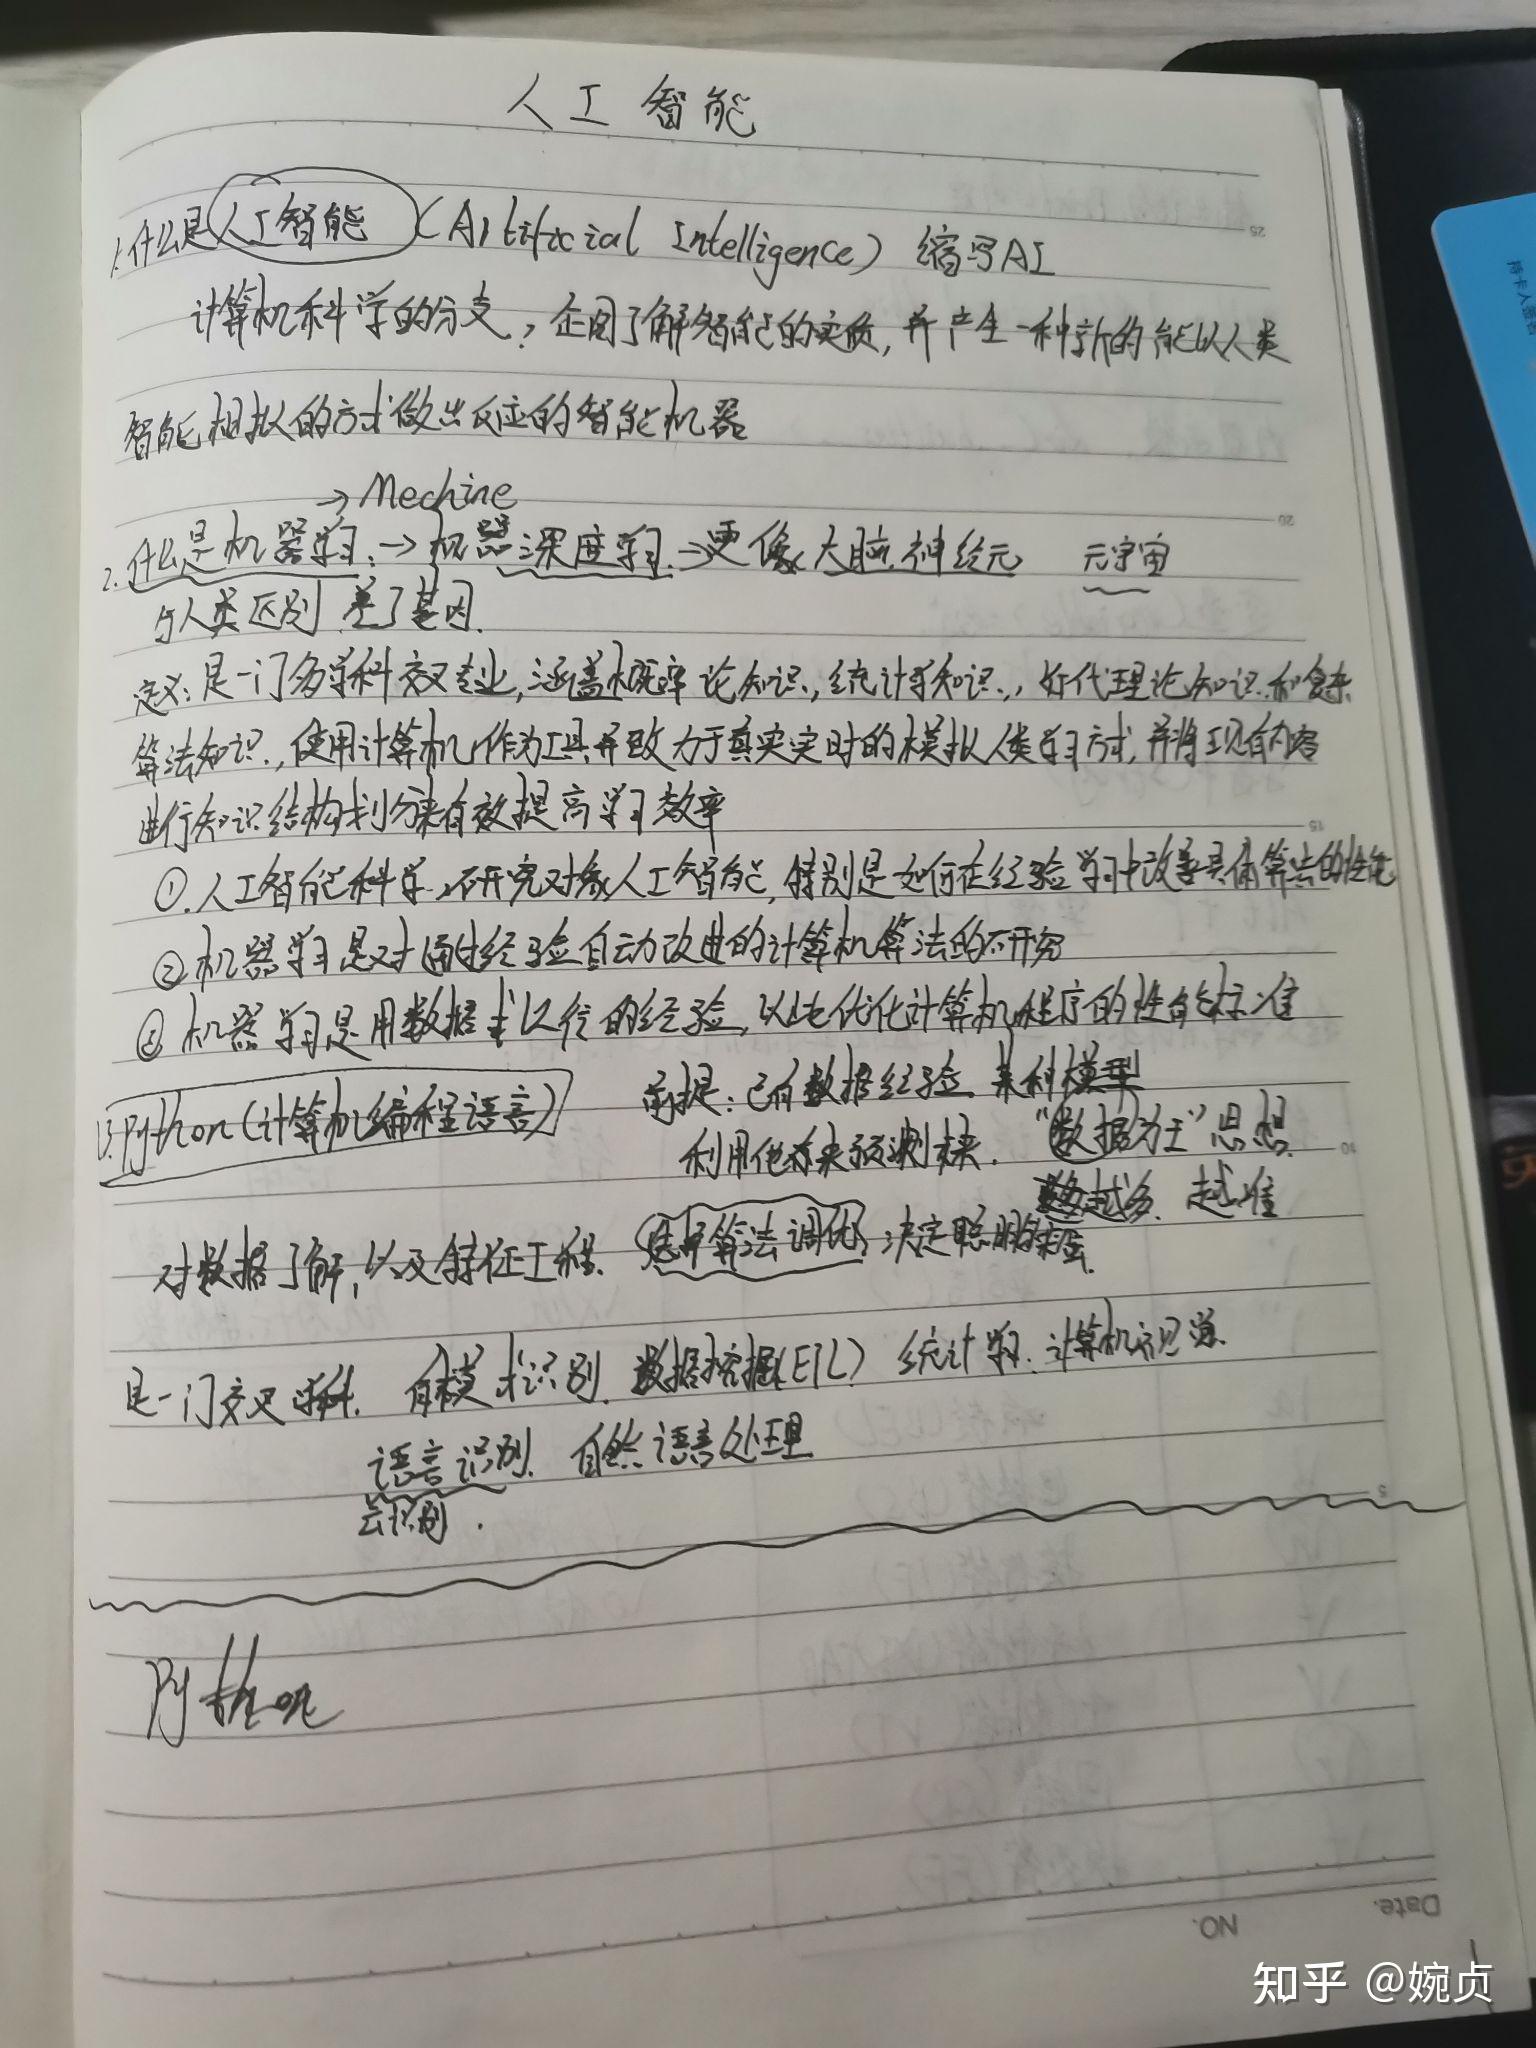 人工智能
1.什么是人工智能(Artificial Intelligence) 缩写AI
计算机科学的分支,企图了解智能的实质,并产生一种新的能以人类
智能相拟的方式做出反应的智能机器
→Mechine
2.什么是机器学习:→机器深度学习→更像大脑神经元 元宇宙
与人类区别 差了基因.
定义:是一门多学科交叉专业,涵盖概率论知识,统计学知识,,近似理论知识和复杂
算法知识,使用计算机作为工具并致力于真实实时的模拟人类学习方式,并将现有内容
进行知识结构划分来有效提高学习效率
①.人工智能科学,研究对象人工智能,特别是如何在经验学习中改善具体算法的性能
②机器学习是对通过经验自动改进的计算机算法的研究
③机器学习是用数据或以往的经验,以此优化计算机程序的性能标准
3.Python(计算机编程语言) 前提:已有数据经验 某种模型
利用他来预测未来. “数据为王”思想.
越多 越准
对数据了解,以及特征工程. 算法调优,决定聪明
是一门交叉学科. 有模式识别.数据挖掘(ETL) 统计学习.计算机视觉.
语言识别. 自然语言处理
识别.
Python
25
20
15
10
5
NO.
Date.
持卡人签名
知乎 @婉贞